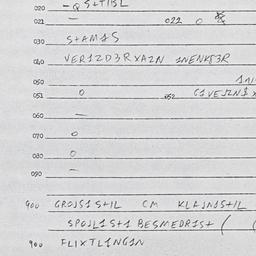 020 -Q S+TIBL
021 — 022 0
030 S+AM1S
040 VER1ZD3RXAZN 1NENK83R
050
051 0 052 C1VESZN1X
060 —
070 0
080 0
090 —
900 GROJS1S+IL CM KLAJN1S+IL
SPOJL1S+1 BESMEDR1S+ (
900 FLIXTL1NG1N